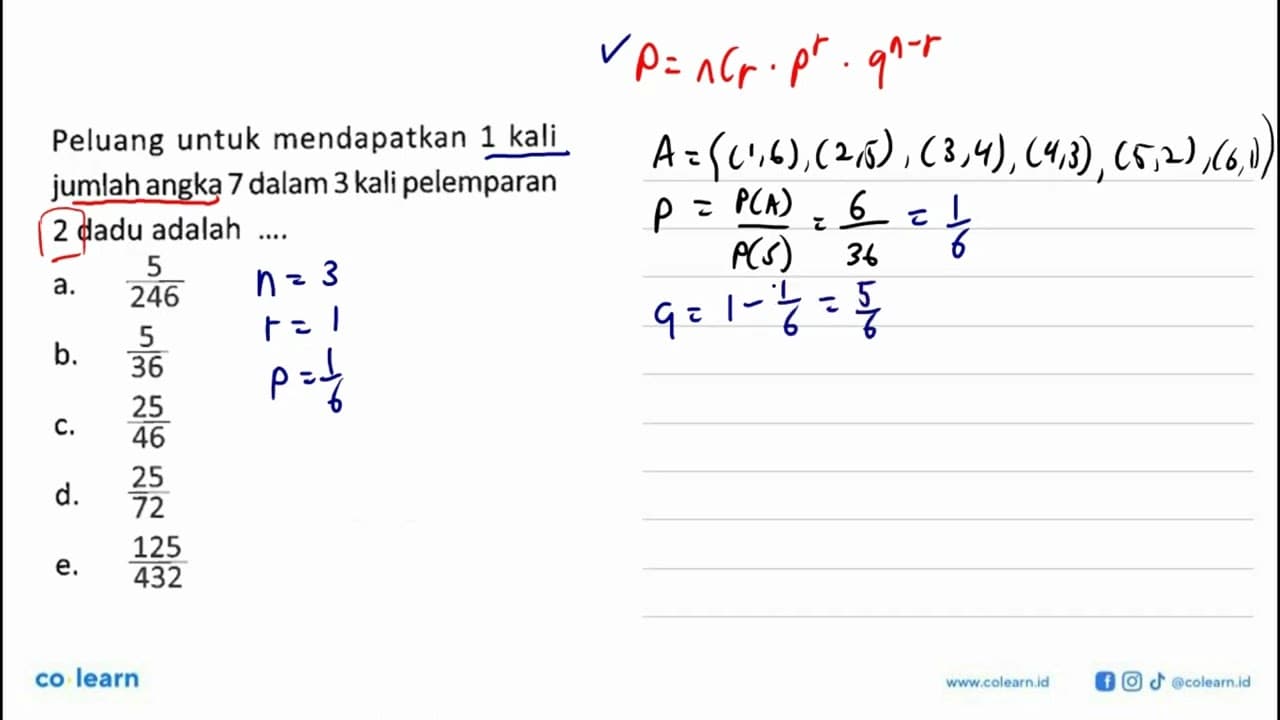 ✓ P = nCr · p^r · q^n-r
Peluang untuk mendapatkan 1 kali
jumlah angka 7 dalam 3 kali pelemparan
2 dadu adalah ....
a. 5/246
b. 5/36
c. 25/46
d. 25/72
e. 125/432
n = 3
r = 1
p = 1/6
A = {(1,6), (2,5), (3,4), (4,3), (5,2), (6,1)}
P = P(A)/P(S) = 6/36 = 1/6
q = 1 - 1/6 = 5/6
co learn
www.colearn.id
@colearn.id